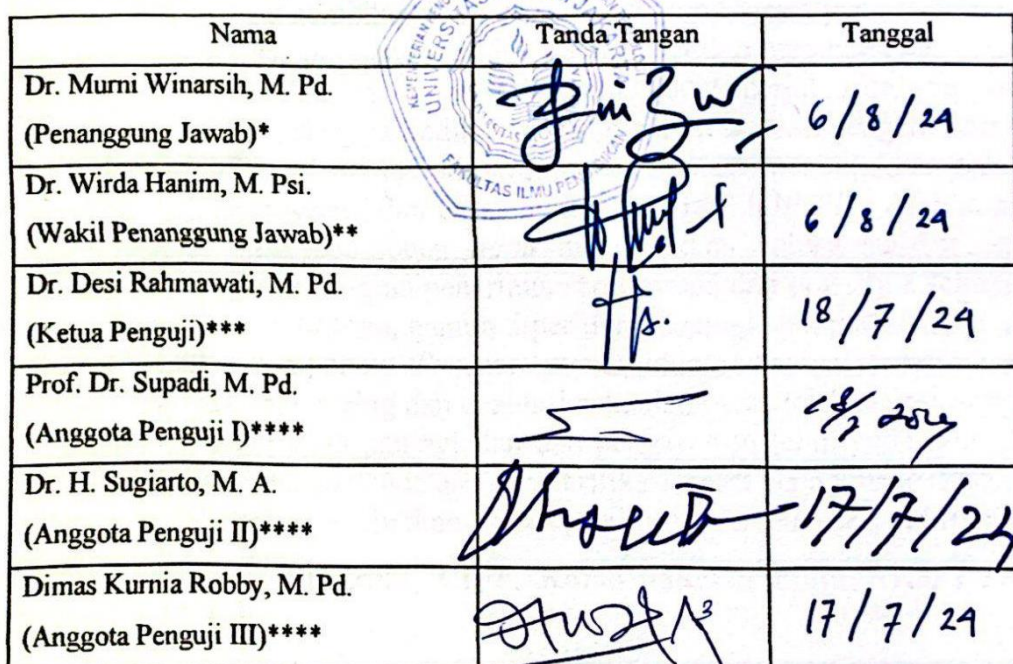 Nama Tanda Tangan Tanggal
Dr. Murni Winarsih, M. Pd.
(Penanggung Jawab)* 6/8/24
Dr. Wirda Hanim, M. Psi.
(Wakil Penanggung Jawab)** 6/8/24
Dr. Desi Rahmawati, M. Pd.
(Ketua Penguji)*** 18/7/24
Prof. Dr. Supadi, M. Pd.
(Anggota Penguji I)****
Dr. H. Sugiarto, M. A.
(Anggota Penguji II)**** 17/7/24
Dimas Kurnia Robby, M. Pd.
(Anggota Penguji III)**** 17/7/24
FAKULTAS ILMU PENDIDIKAN